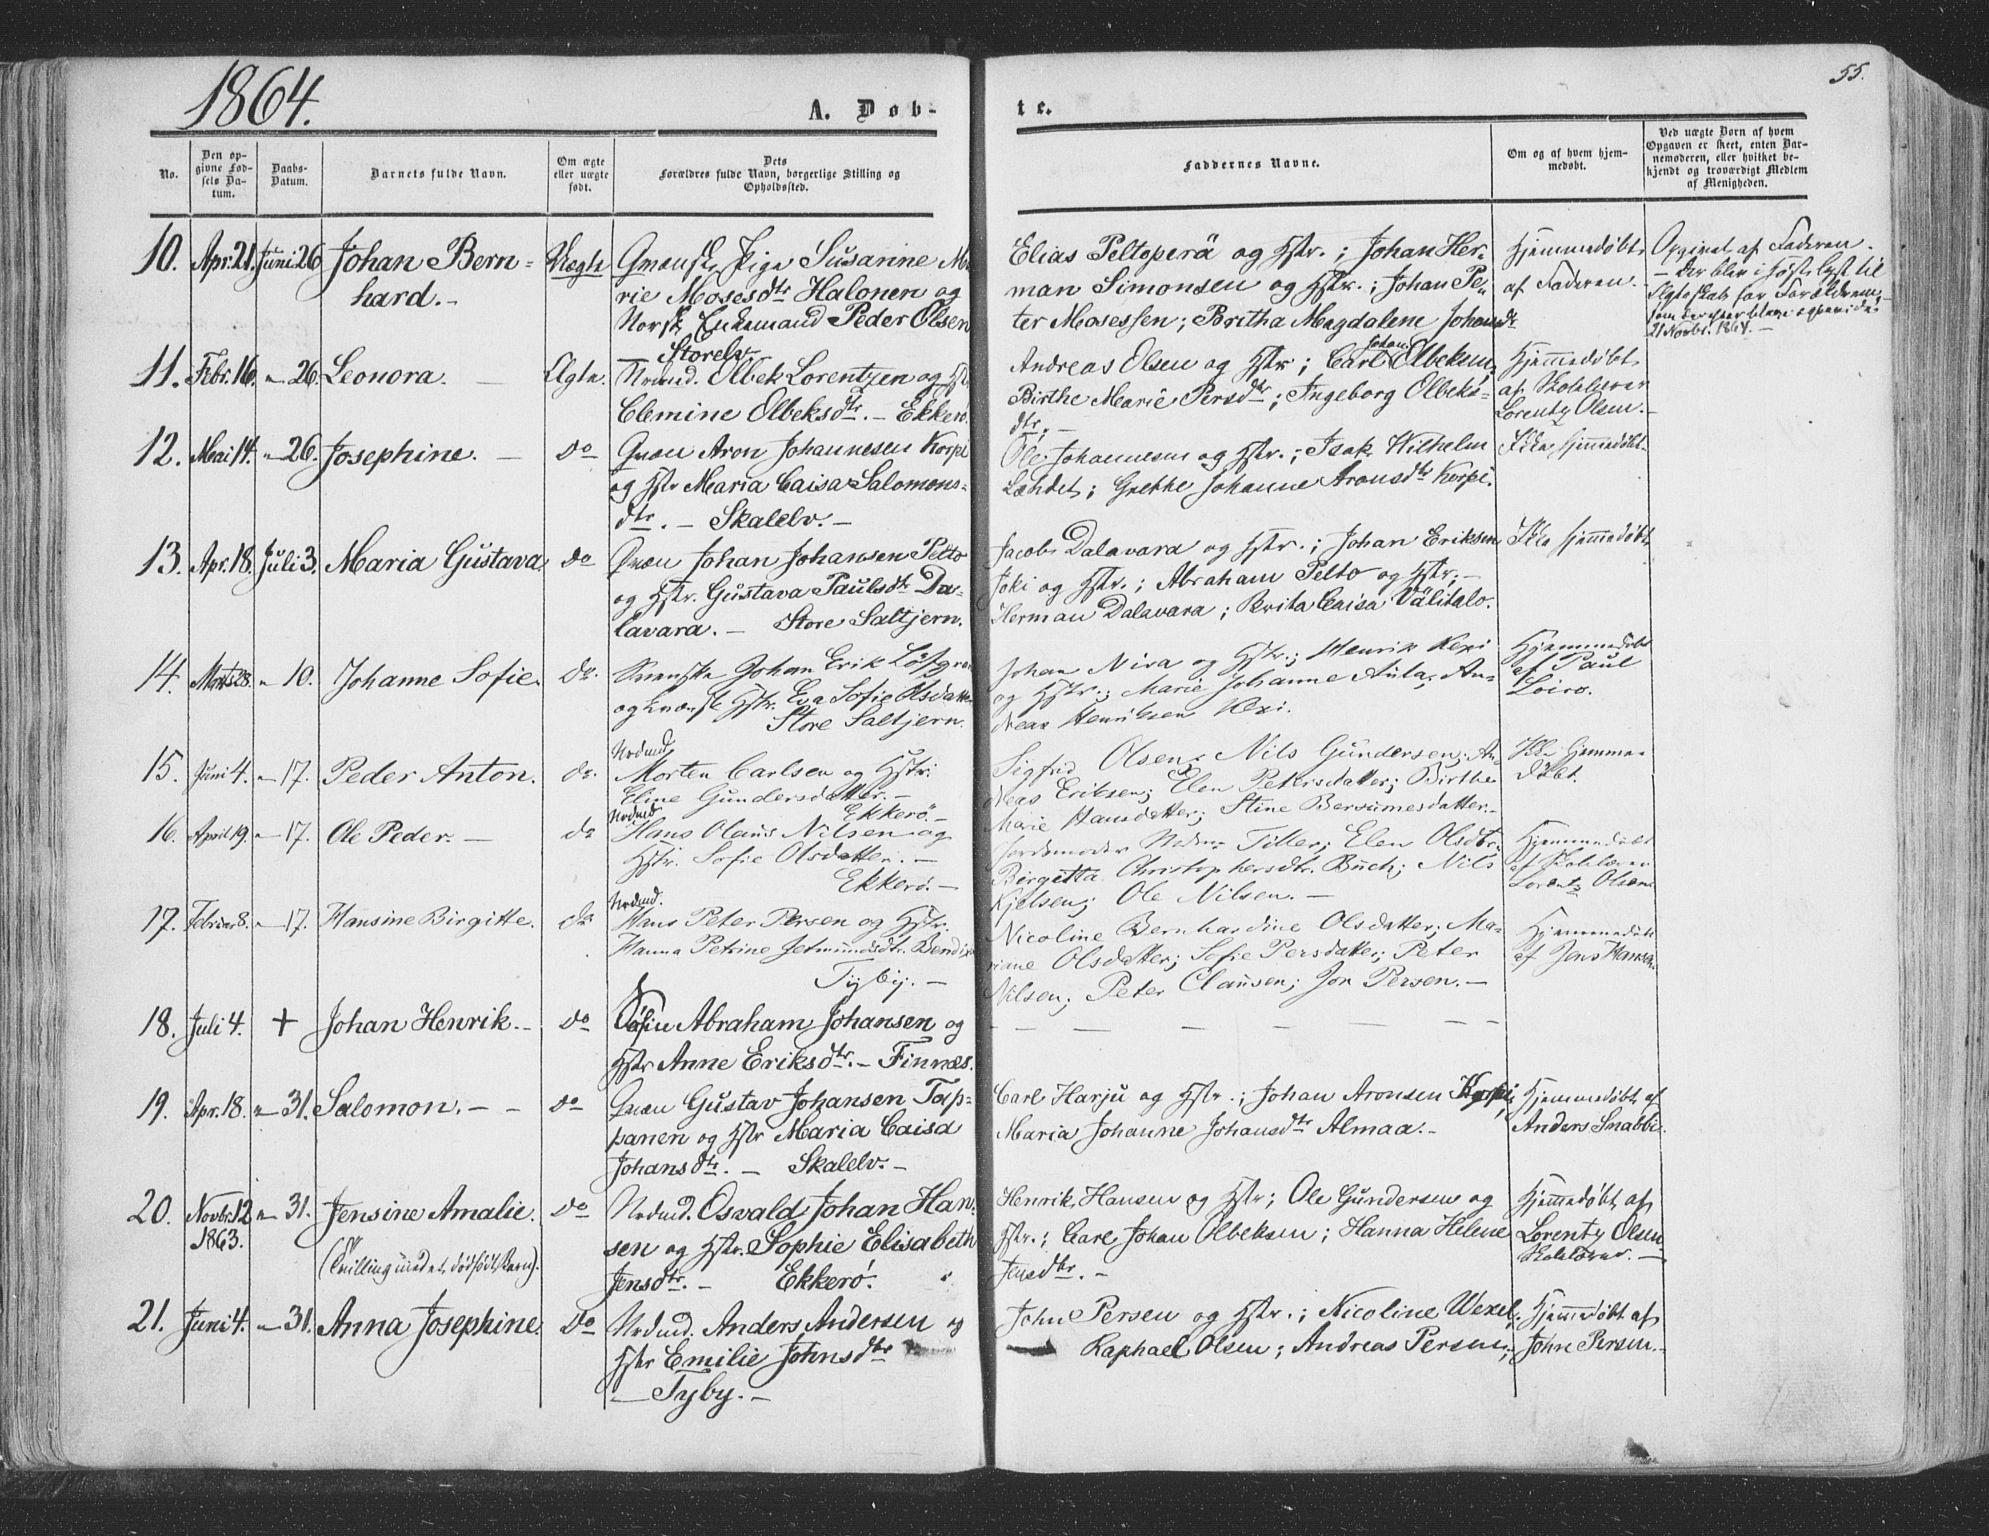 1864.
A. Døb-
te.
55.
No.
Den op-
givne Fød-
sels Da-
tum.
Daabs-
Datum.
Barnets fulde Navn.
Om ægte
eller uægte
født.
Dets
Forældres fulde Navn, borgerlige Stilling og
Opholdssted.
Faddernes Navne.
Om og af hvem hjem-
medøbt.
Ved uægte Børn af hvem
Opgaven er skeet, enten Bar-
nemoderen, eller hvilket be-
kjendt og troværdigt Medlem
af Menigheden.
10. Apr. 21. Juni 26 Johan Bern-
hard.-
Uægte
Qvænsk Pige Susanne Ma-
rie Mosesdtr Halonen og
Norsk Enkemand Peder Olsen
- Storelv.-
Elias Peltoperä og Hstr.; Johan Her-
man Simonsen og Hstr.; Johan Pe-
ter Mosessen; Britha Magdalene Johansdtr
Hjemmedøbt
af Faderen.
Opgivet af Faderen.
- Der blev i Høst lyst til
Ægteskab for Forældrene,
21 Novbr. 1864.-
11. Febr. 16. - 26. Leonora. - Ægte. Nrdmd. Olbek Lorentzen og Hstr
Clemine Olbeksdtr. - Ekkerø.
Andreas Olsen og Hstr; Carl Johan Olbeksen;
Birthe Marie Persdtr; Ingeborg Olbeks-
dtr.-
Hjemmedøbt
af Skolelærer
Lorentz Olsen.-
12. Mai 14. - 26. Josephine. - do Qvæn Aron Johannesen Korpi
og Hstr Maria Caisa Salomons-
dtr. - Skalelv.-
Ole Johannesen og Hstr.; Isak Wilhelm
Lahdet; Grethe Johanne Aronsdtr Korpi.
Ikke hjemmedøbt.
13. Apr. 18. Juli 3. Maria Gustava. do Qvæn Johan Johansen Pelto
og Hstr. Gustava Paulsdtr Da-
lavara. - Store Saltjern.
Jacob Dalavara og Hstr.; Johan Eriksen
Joki og Hstr.; Abraham Pelto og Hstr;-
Herman Dalavara; Brita Caisa Välitalo.
Ikke hjemmedøbt
14. Marts 28. - 10. Johanne Sofie. do. Svenske Johan Erik Löfgren
og kvænsk Hstr. Eva Sofie Olsdatter
Store Saltjern.
Johan Niva og Hstr.; Henrik Kexi
og Hstr.; Marie Johanne Aula; An-
dreas Henriksen Kexi.
Hjemmedöbt
af Paul
Loiro.
15. Juni 4. - 17. Peder Anton. do. Nrdmd
Morten Carlsen og Hstr.
Eline Gundersdatter.-
Ekkerö.-
Sigfrid Olsen; Nils Gundersen; An-
dreas Eriksen; Elen Petersdatter; Birthe
Marie Hansdatter; Stine Bersumesdatter.-
Ikke hjemme-
döbt.
16. April 19. - 17. Ole Peder.- do Nrdmd
Hans Olaus Nilsen og
Hstr. Sofie Olsdatter.-
Ekkerö.-
Jordemoder Tiller; Elen Olsdtr.
Birgitta Christophersdtr. Buch; Nils
Kjelsen; Ole Nilsen.-
Hjemmedöbt
af Skolelærer
Lorentz Olsen.
17. Februar 8. - 17. Hansine Birgitte. do Nrdmd.
Hans Peter Persen og Hstr.
Hanna Petrine Jetmundsdtr. Bendix
Tyby.-
Nicoline Bernhardine Olsdatter; Ma-
riane Olsdatter; Sofie Persdatter; Peter
Nilsen; Peter Clausen; Jon Persen.-
Hjemmedöbt
af Jens Hansen.
18. Juli 4. + Johan Henrik.- do Søfin Abraham Johansen og
Hstr Anne Eriksdtr.- Finnæs.
19. Apr. 18. - 31. Salomon.- - do Qvæn Gustav Johansen Tap-
panen og Hstr Maria Caisa
Johansdtr. - Skalelv.-
Carl Harju og Hstr.; Johan Aronsen Korpi;
Maria Johanne Johansdtr Almaa.-
Hjemmedøbt af
Anders Snabbi.
20. Novbr. 12 - 31. Jensine Amalie. do Nrdmd. Osvald Johan Han-
1863.
(Tvilling med et dødfødt Barn).
sen og Hstr. Sophie Elisabeth
Jensdtr.- Ekkerø.
Henrik Hansen og Hstr; Ole Gundersen og
Hstr.; Carl Johan Olbeksen; Hanna Helene
Jensdtr.-
Hjemmedøbt af
Lorentz Olsen
Skolelærer.-
21. Juni 4. - 31. Anna Josephine. Do Nrdmd. Anders Andersen og
Hstr Emilie Johnsdtr
- Tyby.-
John Persen og Hstr.; Nicoline Wexel;
Raphael Olsen; Andreas Persen;
Hjemmedøbt af
John Persen.-